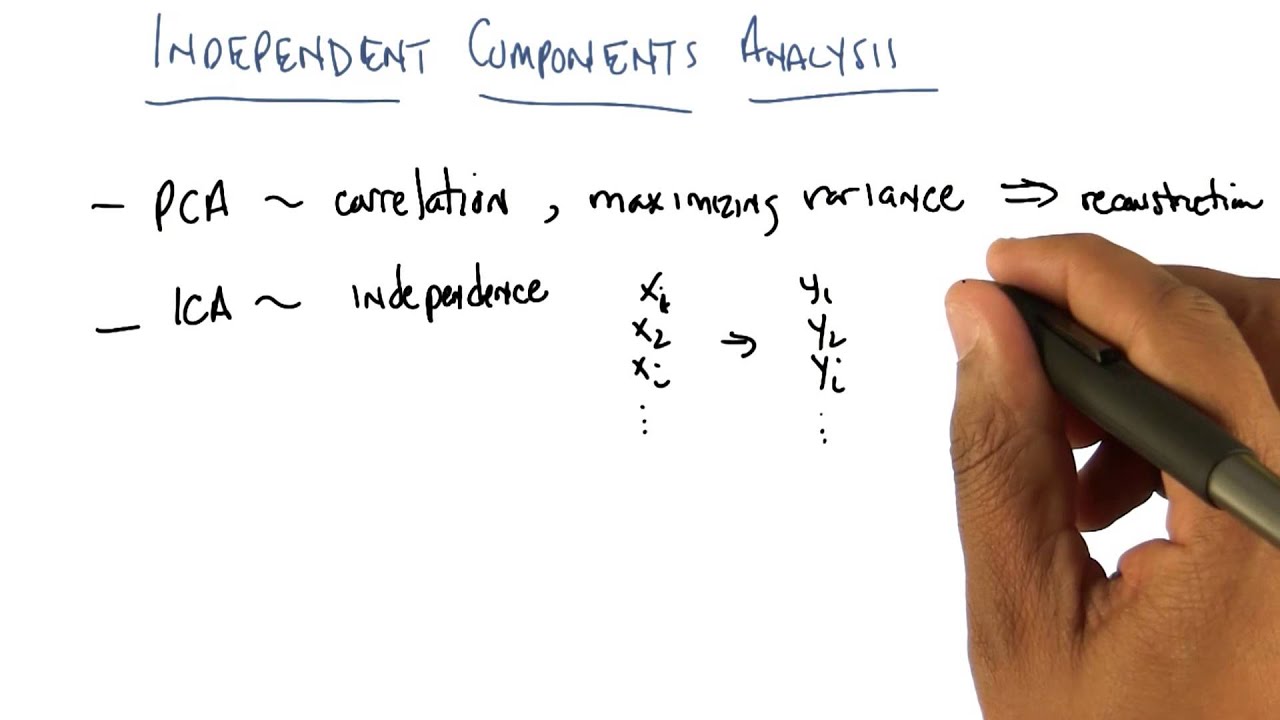 INDEPENDENT COMPONENTS ANALYSIS
- PCA ~ correlation, maximizing variance ⇒ reconstruction
- ICA ~ independence
x₁ y₁
x₂ → y₂
xᵢ yᵢ
⋮ ⋮